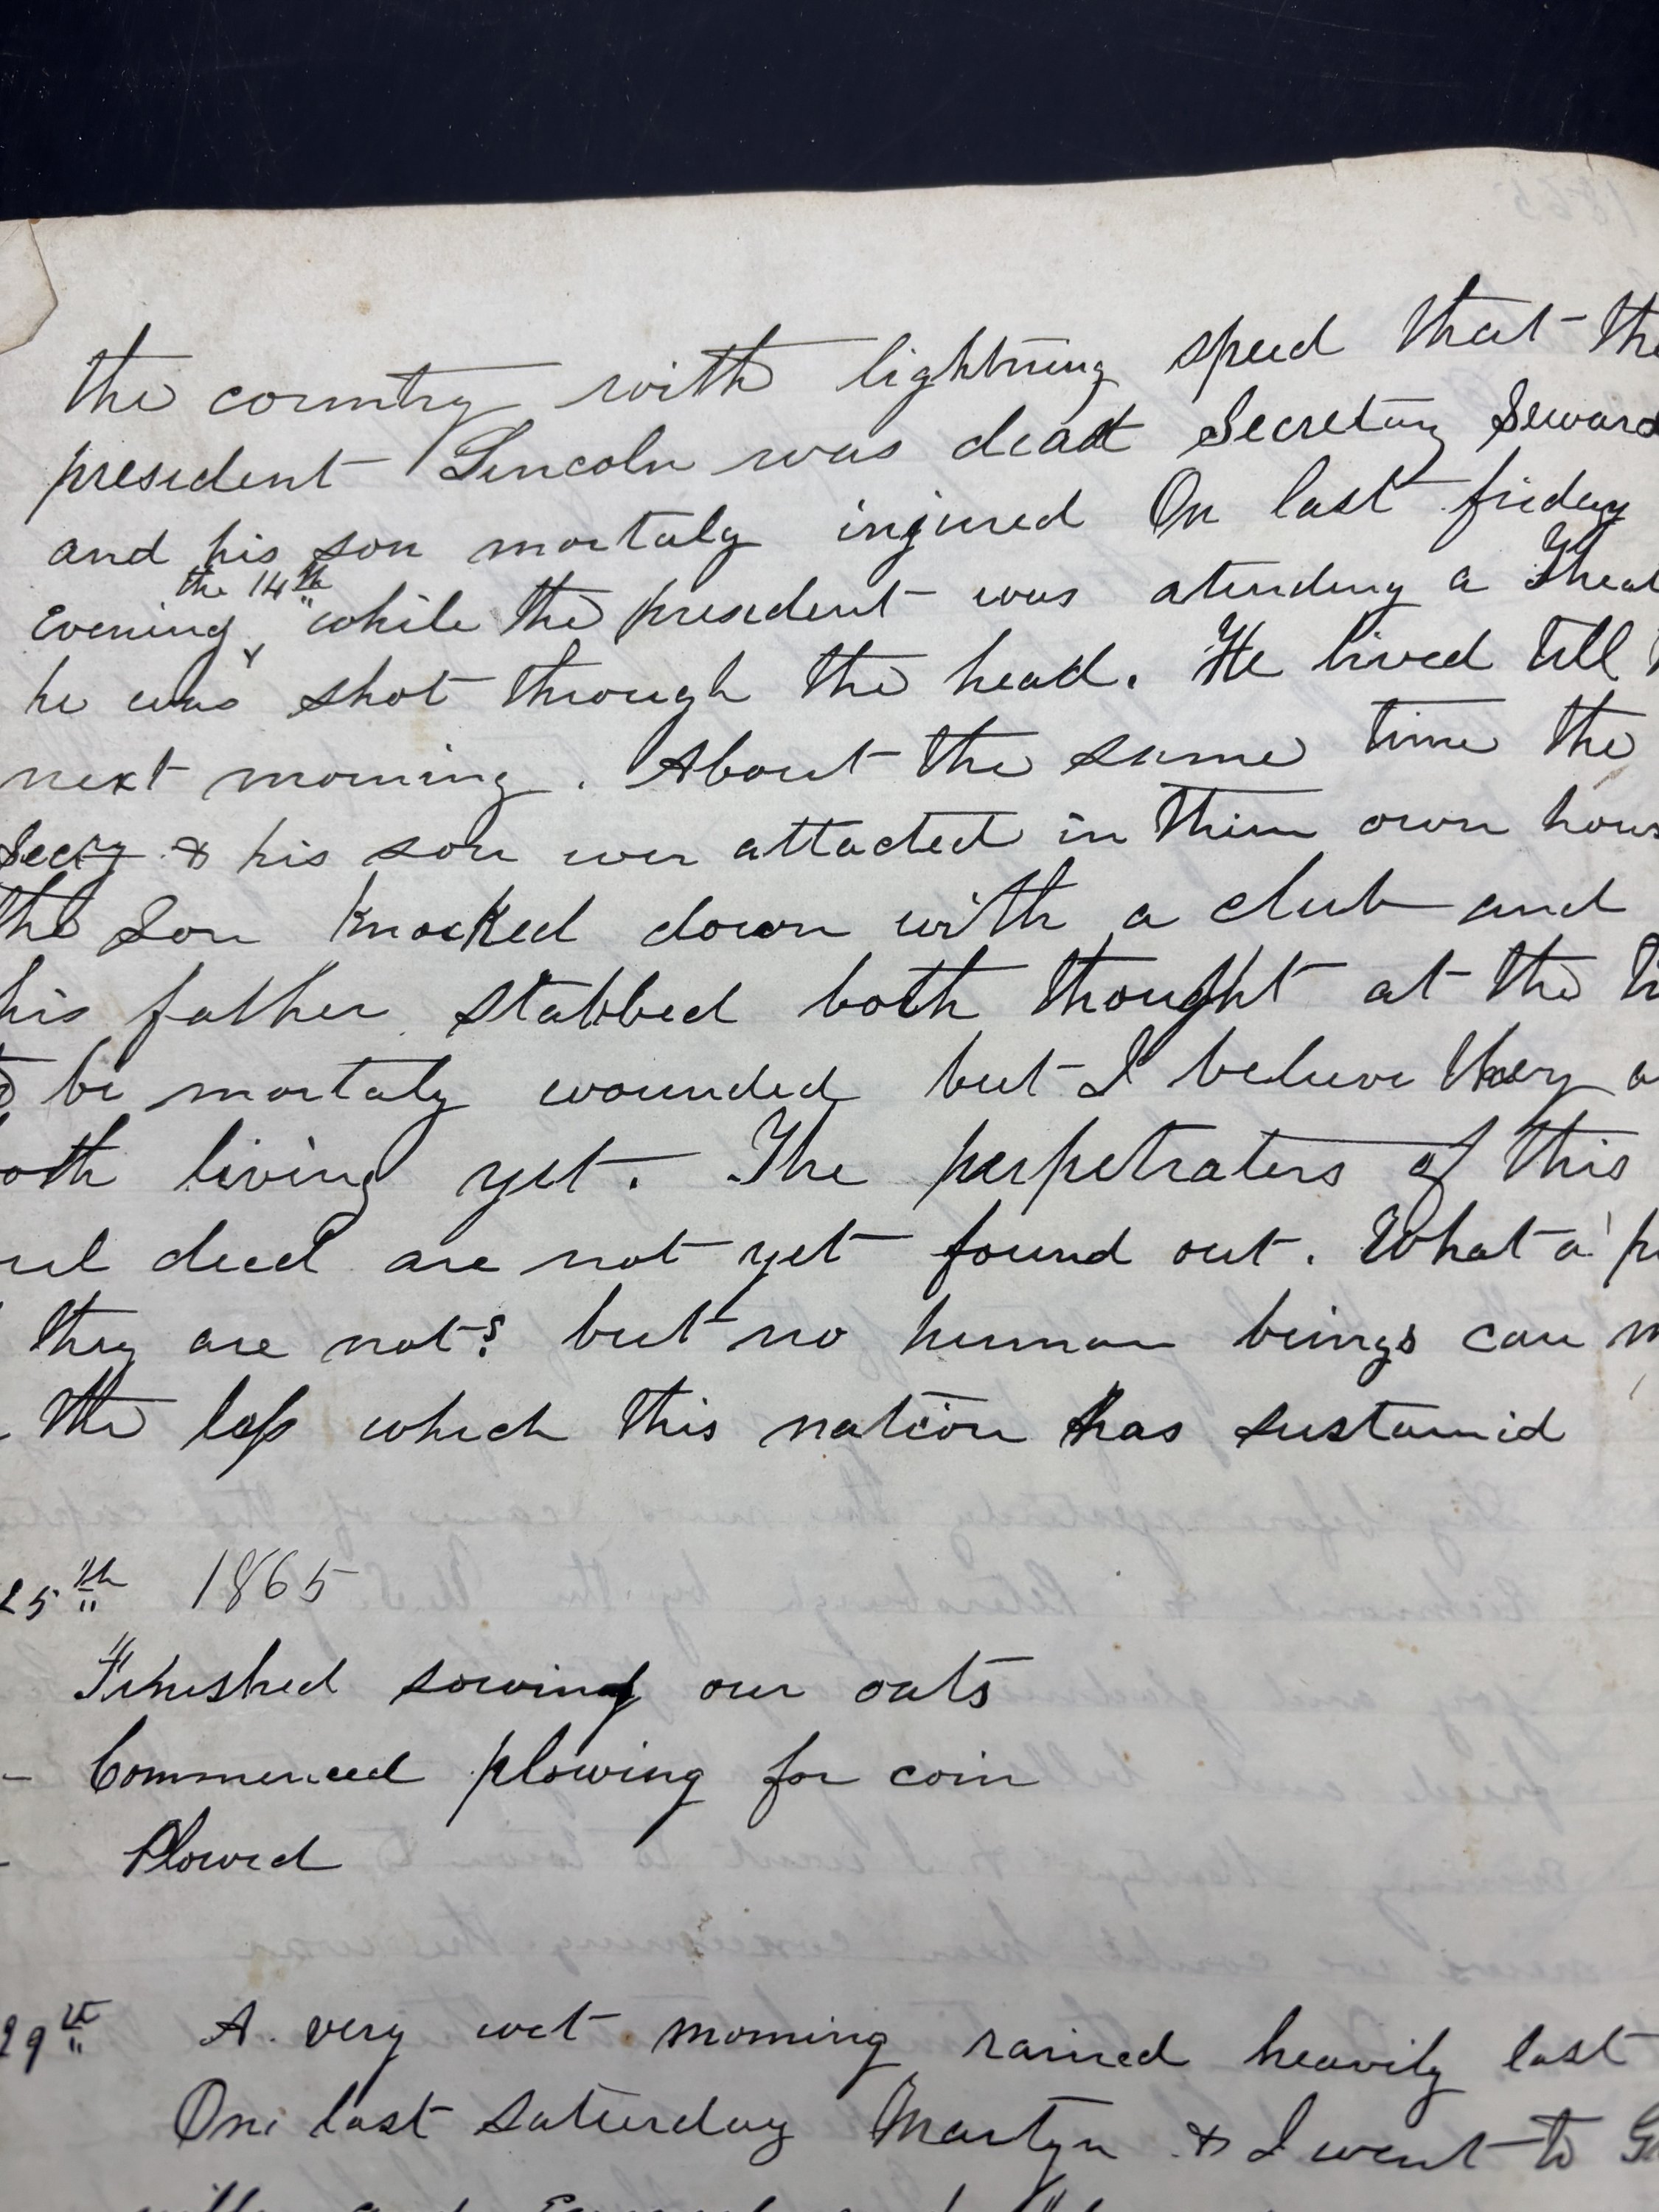 1865
the country with lightning speed that the
president Lincoln was dead Secretary Seward
and his son mortaly injured On last friday
the 14th
Evening, while the president was atending a Theat
he was shot through the head. He lived till
next morning. About the same time the
Secry & his son wer attacted in their own hous
the Son knocked down with a club and
his father stabbed both thought at the ti
be mortaly wounded but I believe they a
oth living yet. The perpetraters of this
ul deed are not yet found out. What a
they are not? but no human beings can m
the loss which this nation has sustained
25th 1865
Finished sowing our oats
- Commenced plowing for corn
- Plowed
29th A very wet morning rained heavily last
On last saturday Martyn & I went to